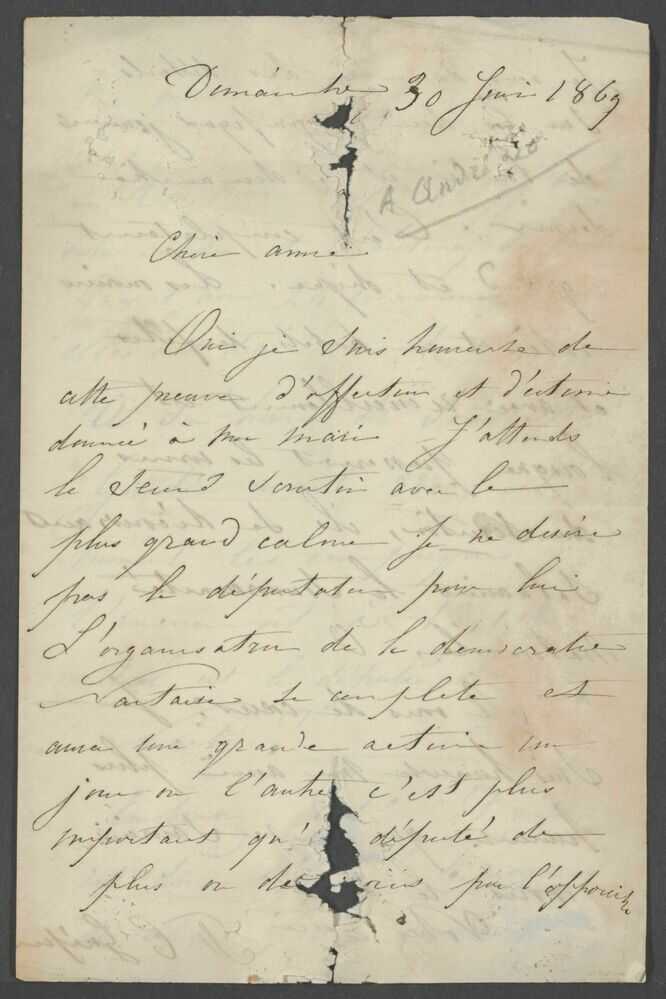 Dimanche 30 Juin 1869
A André Léo
Chère amie
Oui je suis heureuse de
cette preuve d'affection et d'estime
donnée à mon mari J'attends
le second scrutin avec le
plus grand calme je ne désire
pas la députation pour lui
L'organisation de la démocratie
Nantaise se complète et
aura une grande action un
jour ou l'autre c'est plus
important qu' député de
plus ou de moins pour l'opposition